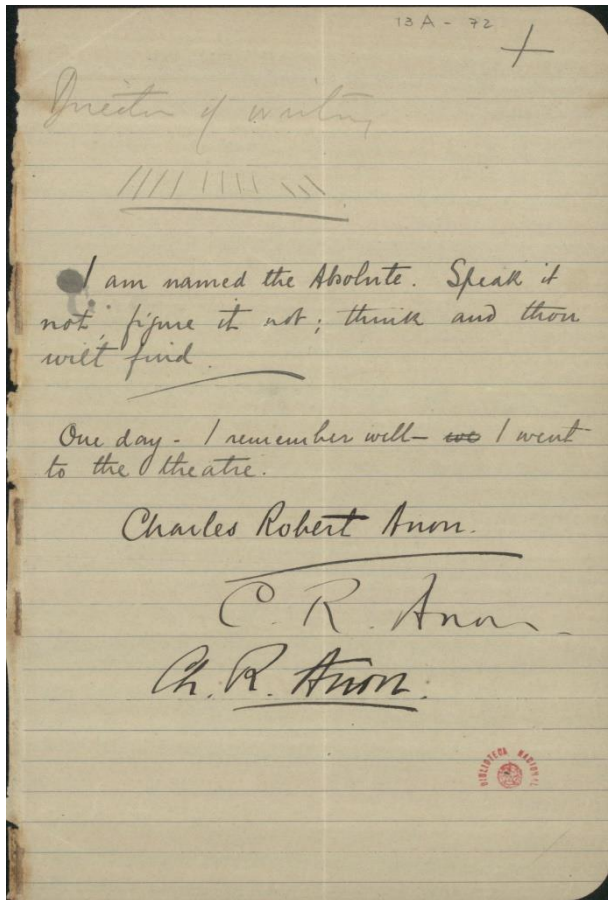 13A - 72
Direction of writing
I am named the Absolute. Speak it
not, figure it not; think and thou
wilt find.
One day - I remember well - we I went
to the theatre.
Charles Robert Anon.
C. R. Anon
Ch. R. Anon.
BIBLIOTECA NACIONAL